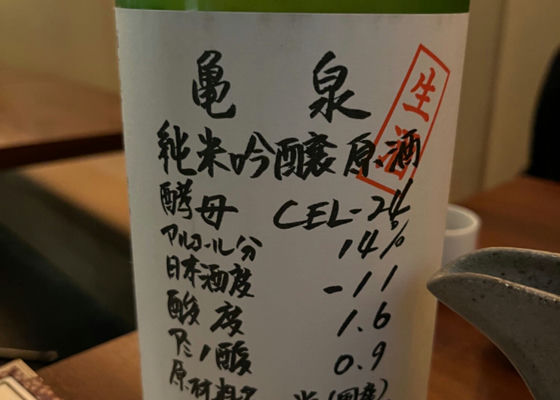 亀泉
生酒
純米吟醸原酒
酵母 CEL-24
アルコール分 14%
日本酒度 -11
酸度 1.6
アミノ酸 0.9
原材料 米(国産)